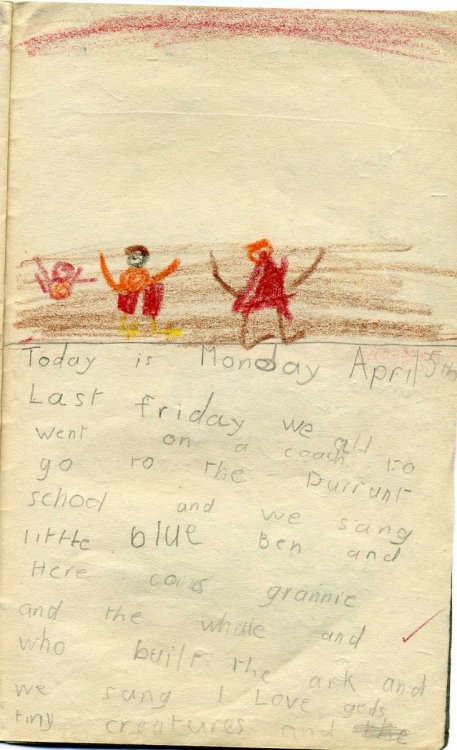 Today is Monday April 5th
Last friday we all
went on a coach to
go to the Durrant
school and we sang
little blue Ben and
Here coms grannie
and the whale and
who built the ark and
we sang I Love gods
tiny creatures and the